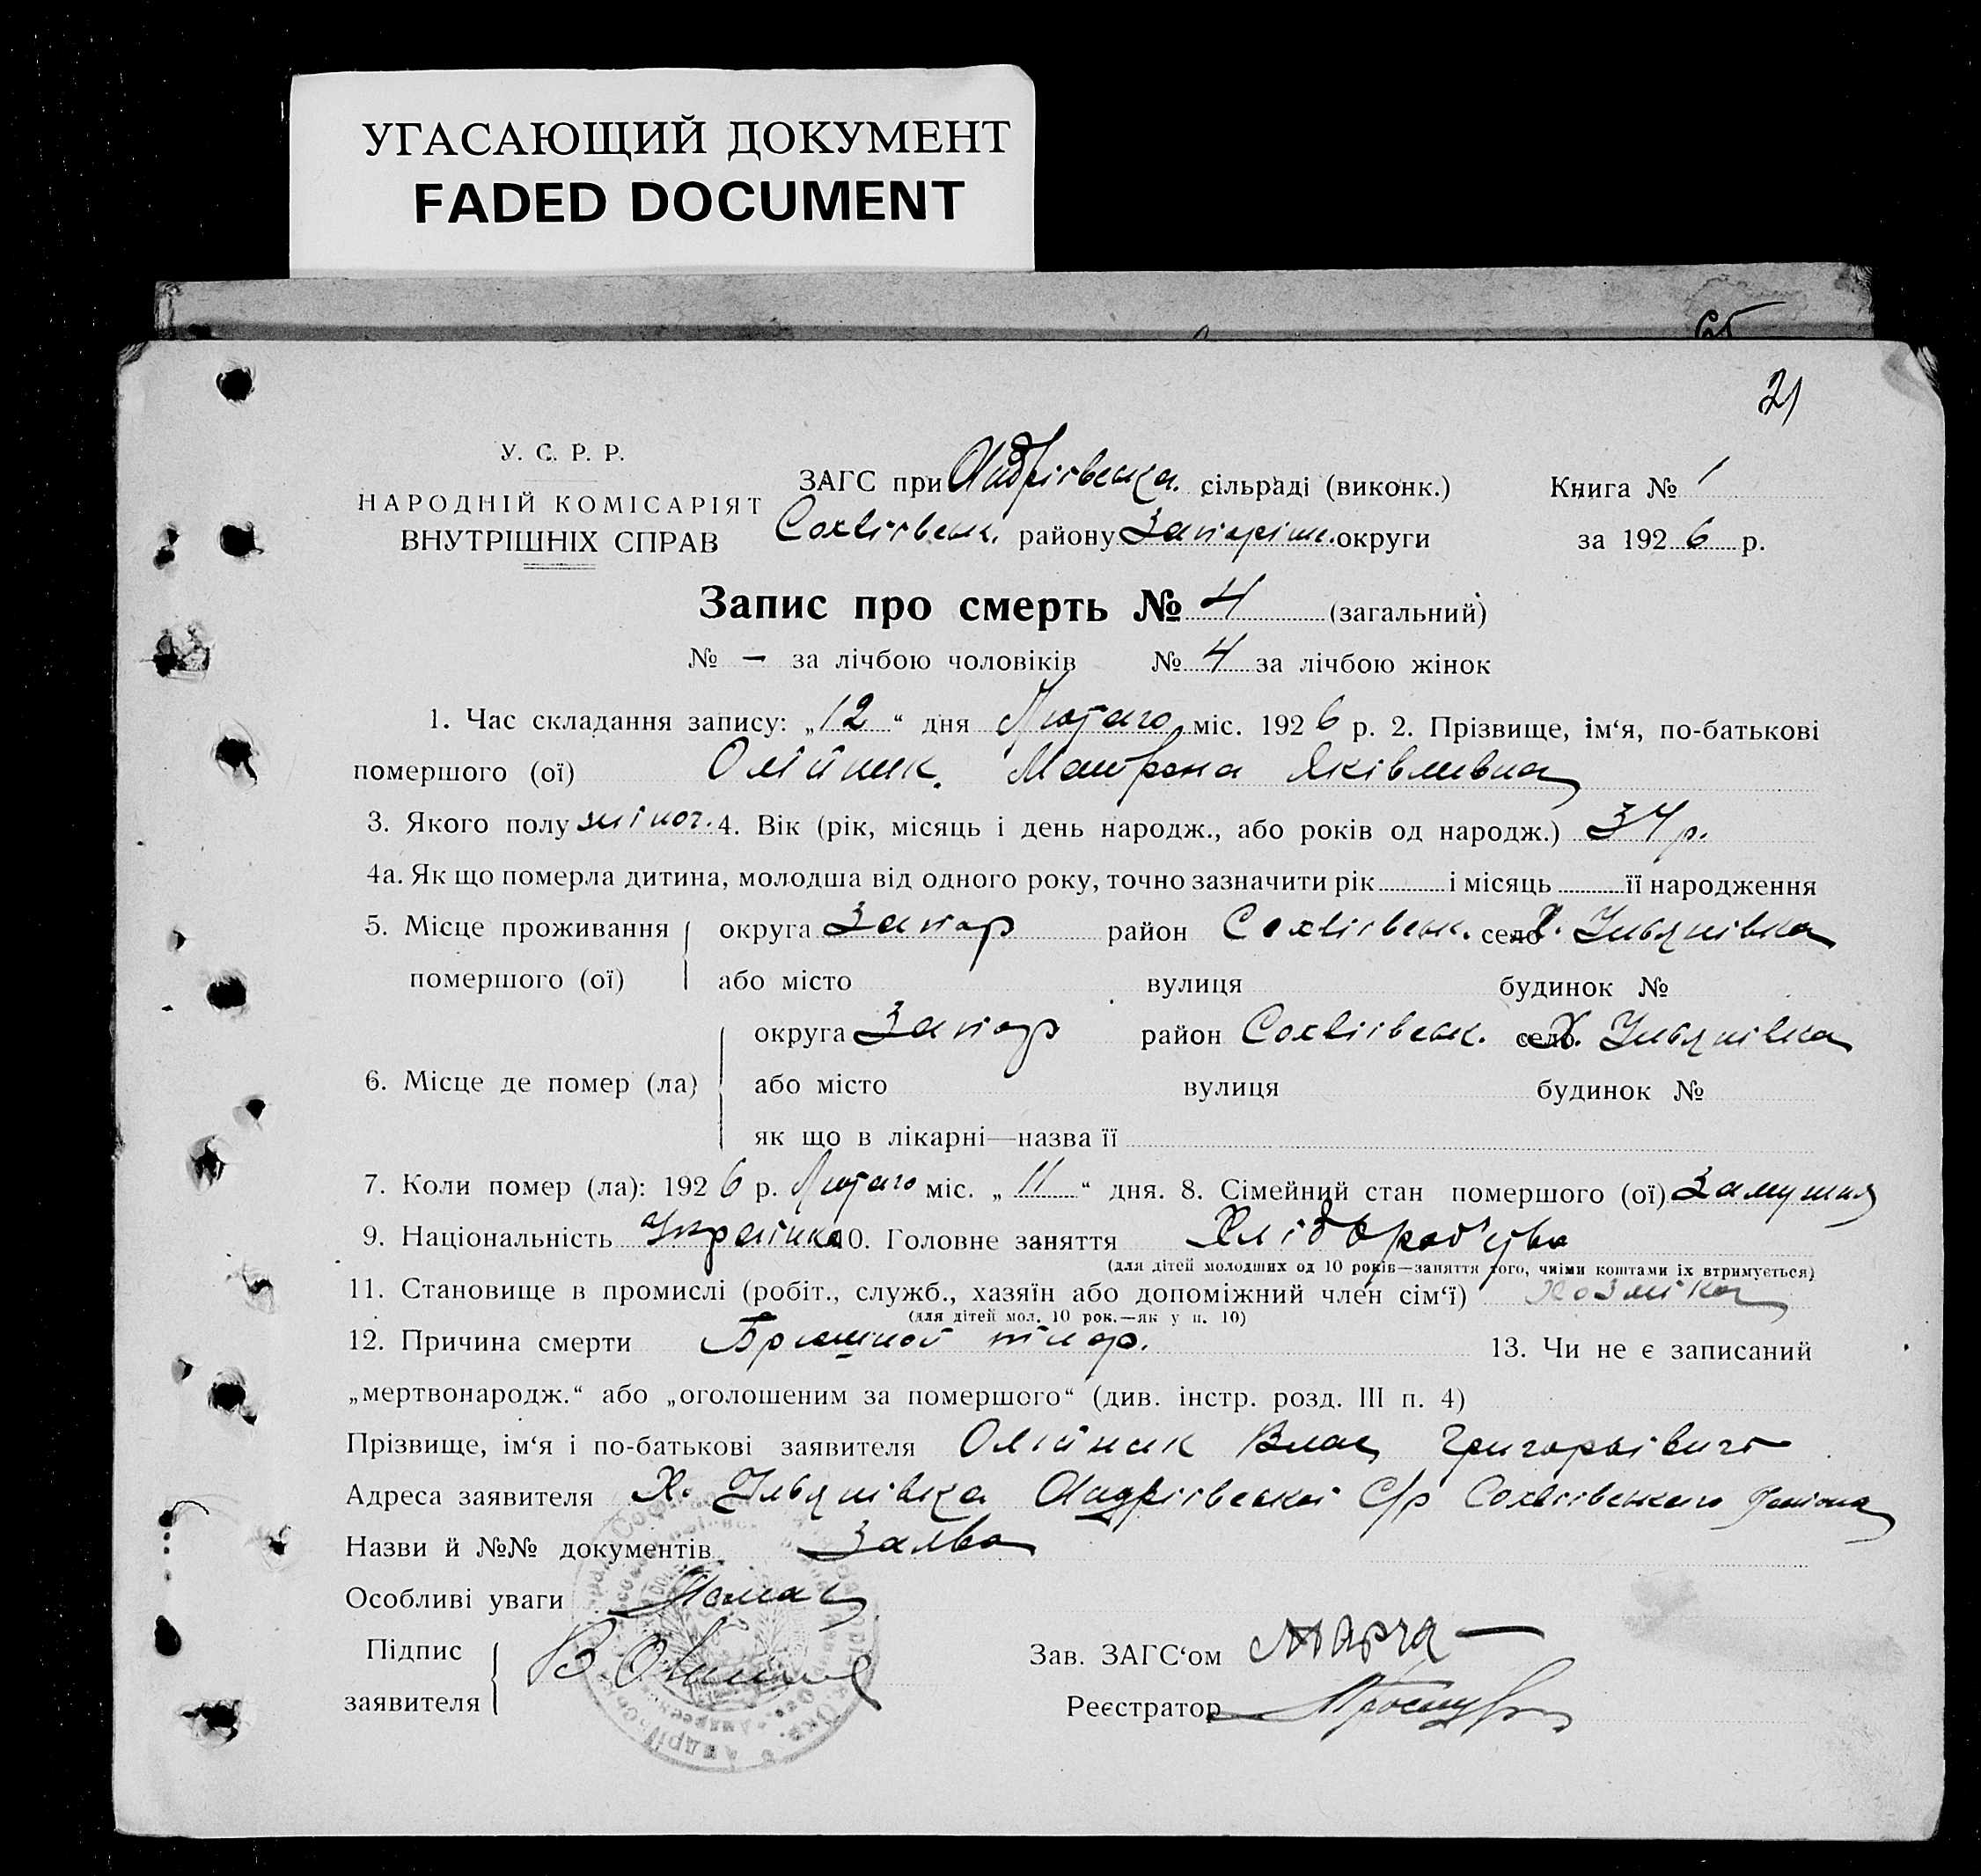 УГАСАЮЩИЙ ДОКУМЕНТ
FADED DOCUMENT
21
У. С. Р. Р.
НАРОДНІЙ КОМІСАРІЯТ
ВНУТРІШНІХ СПРАВ
ЗАГС при Андріївська. сільраді (виконк.)
району Запоріж. округи
Книга № 1
за 1926 р.
Запис про смерть № 4 (загальний)
№ — за лічбою чоловіків № 4 за лічбою жінок
1. Час складання запису: „12“ дня Лютаго міс. 1926 р. 2. Прізвище, ім‘я, по-батькові
помершого (ої) Олійник. Мотрона Яківливна
3. Якого полу жіноч. 4. Вік (рік, місяць і день народж., або років од народж.) 34 р.
4а. Як що померла дитина, молодша від одного року, точно зазначити рік і місяць її народження
5. Місце проживання округа Запор район село Х. Ульянівка
помершого (ої) або місто вулиця будинок №
округа Запор район село Х. Ульянівка
6. Місце де помер (ла) або місто вулиця будинок №
як що в лікарні—назва її
7. Коли помер (ла): 1926 р. Лютаго міс. „11“ дня. 8. Сімейний стан помершого (ої) Замужня
9. Національність Українка 10. Головне заняття Хліборобство
(для дітей молодших од 10 років—заняття того, чиїми коштами їх втримується)
11. Становище в промислі (робіт., служб., хазяїн або допоміжний член сім‘ї)
(для дітей мол. 10 рок.—як у п. 10)
12. Причина смерти Брюшной тиф. 13. Чи не є записаний
„мертвонародж.“ або „оголошеним за помершого“ (див. інстр. розд. III п. 4)
Прізвище, ім‘я і по-батькові заявителя Олійник Влас Григорьівичь
Адреса заявителя Х. Ульянівка Андріївської С/р района
Назви й №№ документів Заява
Особливі уваги Немає
Підпис
заявителя
Зав. ЗАГС‘ом
Реєстратор